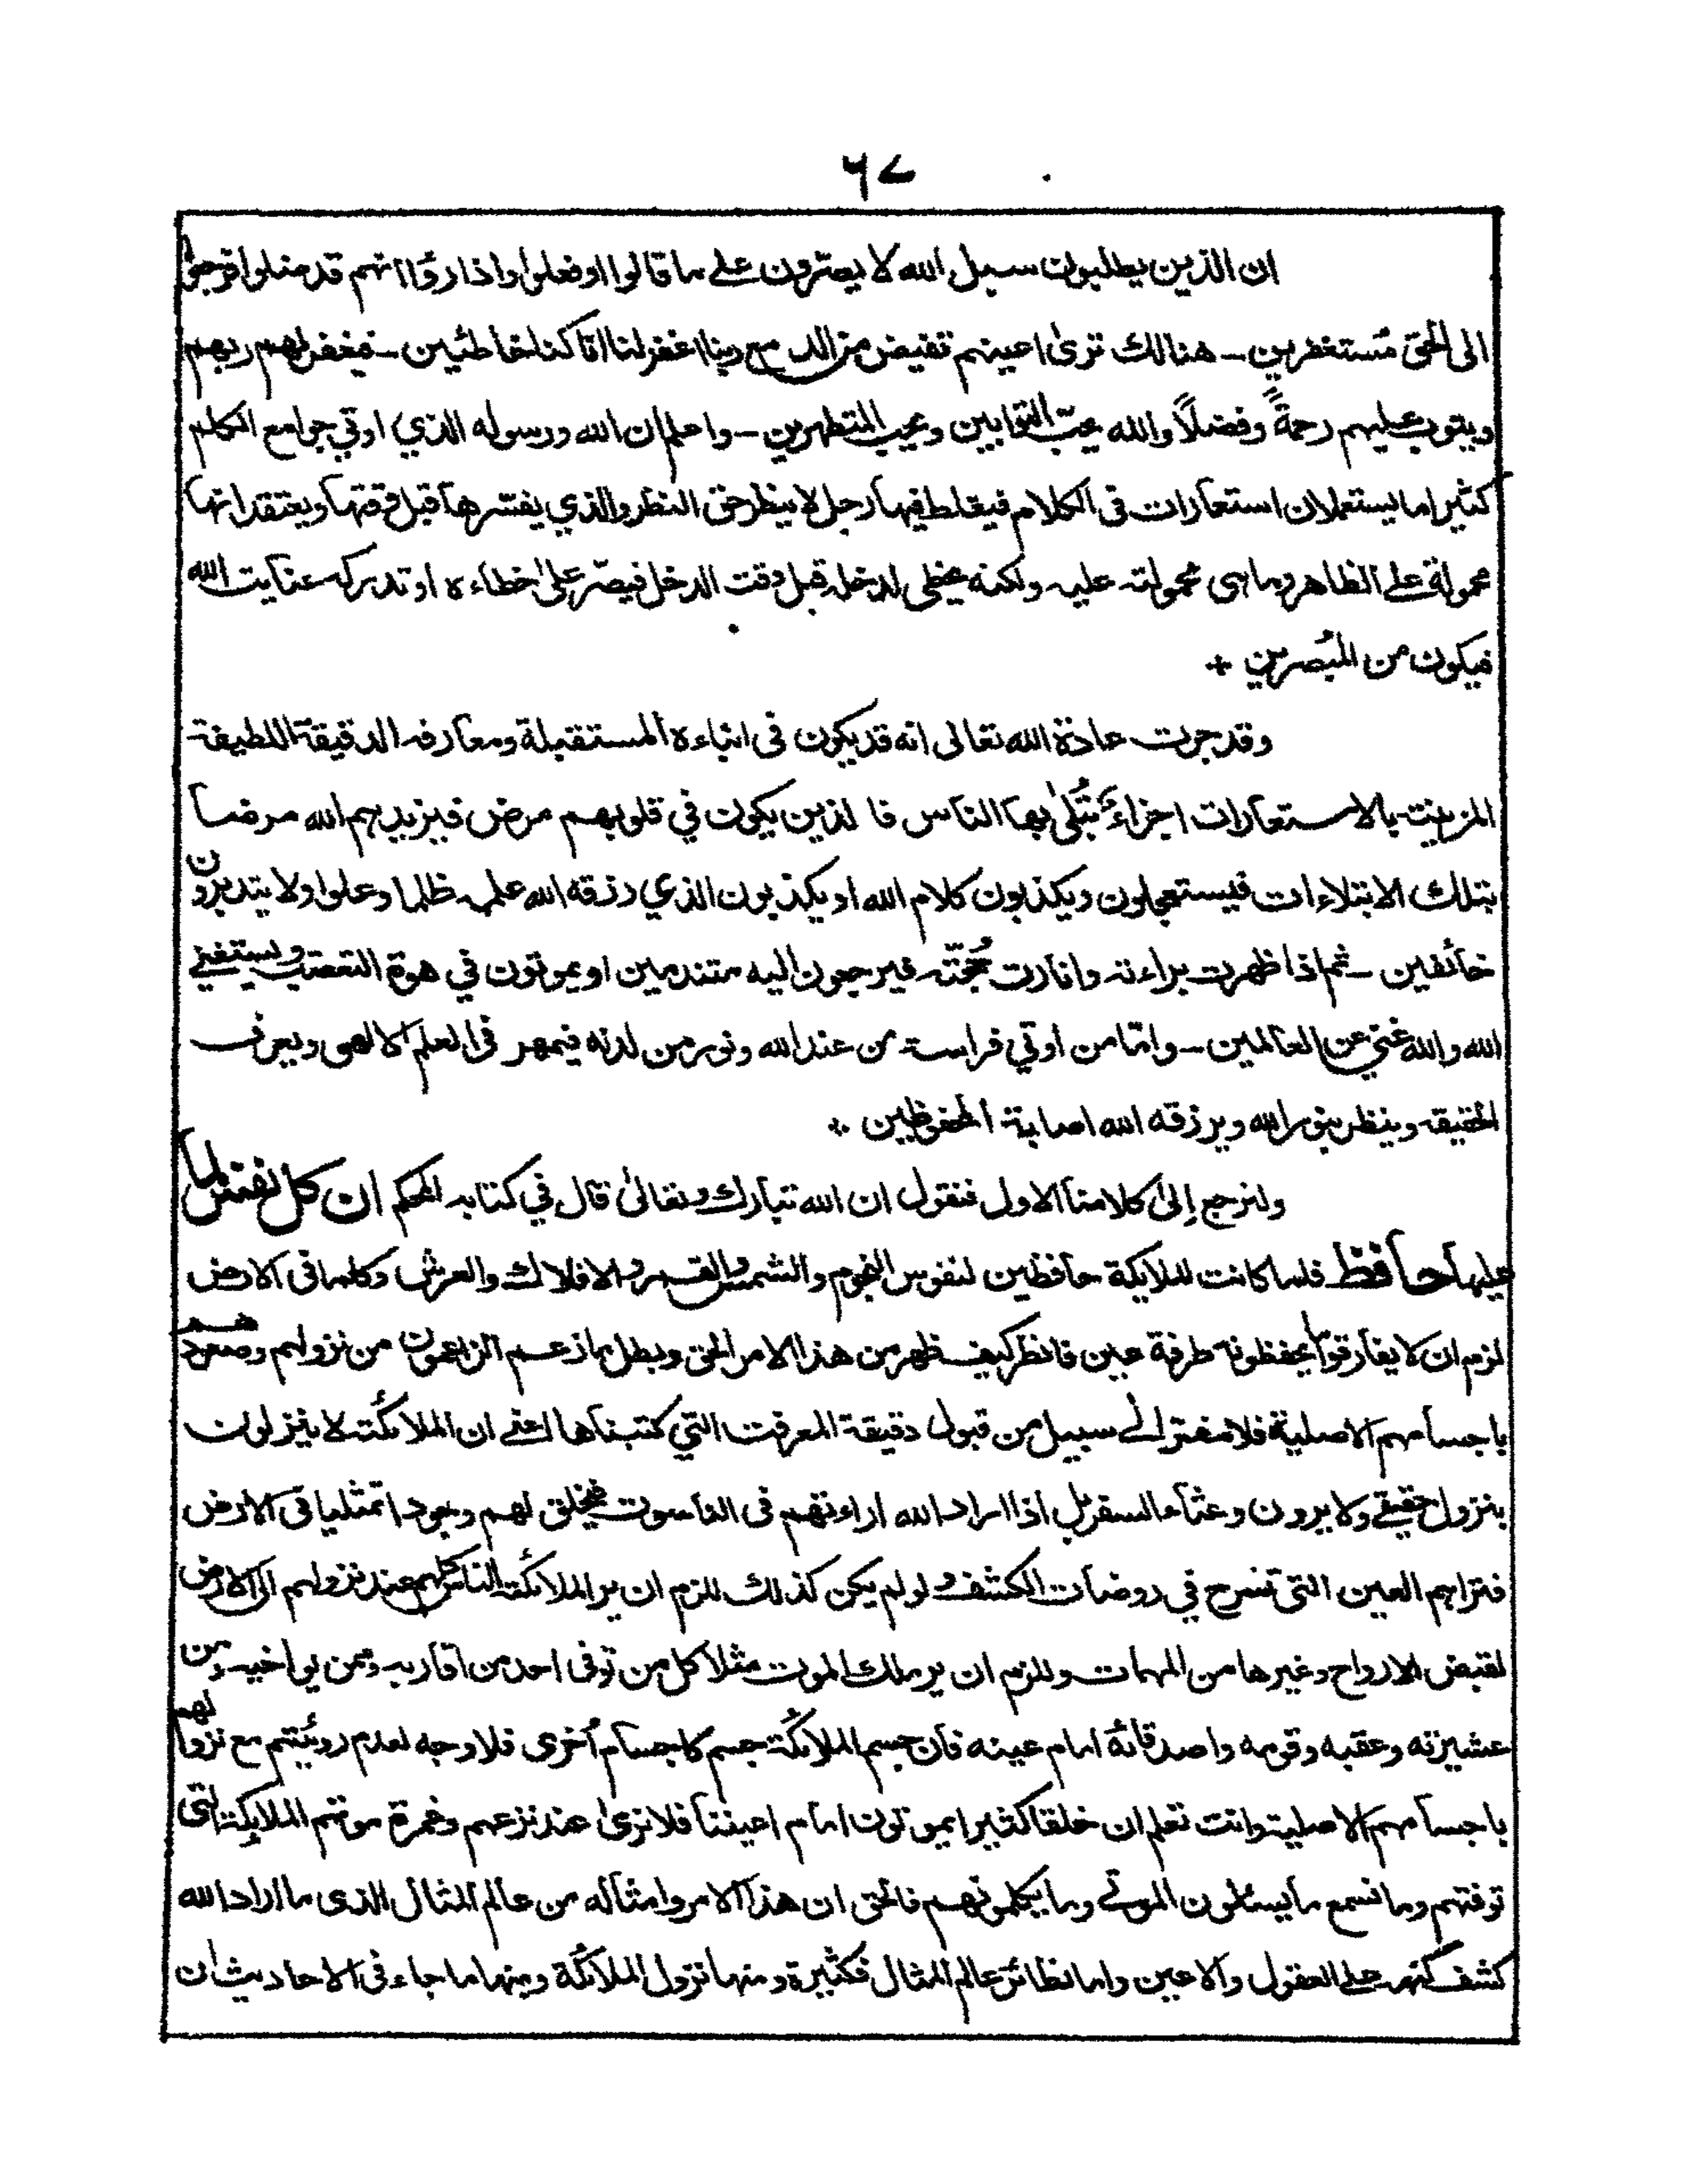 ٦٧
ان الذين يطلبون سبيل الله لا يصرّون على ما قالوا او فعلوا واذا رؤا انهم قد ضلوا فرجعوا
الى الحق مستغفرين - هنالك ترىٰ اعينهم تفيض من الدمع ربنا اغفر لنا انا كنا خاطئين - فيغفر لهم ربهم
ويتوب عليهم رحمةً وفضلاً والله يحبّ التوابين ويحب المتطهرين - واعلم ان الله ورسوله الذي اوتي جوامع الكلم
كثيرا ما يستعملان استعارات فى الكلام فيغلط فيها رجل لا ينظر حق النظر والذي يفسرها قبل وقتها ويعتقد انها
محمولة على الظاهر وما هى محمولة عليه ولكنه يخطى لدخله قبل وقت الدخل فيصرّ علىٰ خطاءه او تدركه عنايت الله
فيكون من المُبصرين +
وقد جرت عادة الله تعالى انه قد يكون فى انباءه المستقبلة ومعارفه الدقيقة اللطيفة
المزينة بالاستعارات اجزاءٌ يُبتلىٰ بها الناس فا لذين يكون في قلوبهم مرض فيزيدهم الله مرضا
بتلك الابتلاءات فيستعجلون ويكذبون كلام الله او يكذبون الذي رزقه الله علمه ظلما وعلوا ولا يتدبرون
خائفين - ثم اذا ظهرت براءته وانارت حُجّته فيرجعون اليه متندمين او يموتون في هوة التعصب ويستغنى
الله والله غني عن العالمين - وامّا من اوتي فراسة من عند الله ونور من لدنه فيمهر فى العلم الالهى ويعرف
الحقيقة وينظر بنور الله ويرزقه الله اصابة المحفوظين ٭
ولنرجع إلىٰ كلامنا الاول فنقول ان الله تبارك وتعالىٰ قال في كتابه المحكم ان كل نفس لما
عليها حافظ فلما كانت للملايكة حافظين لنفوس النجوم والشمس والقمر والافلاك والعرش وكل ما فى الارض
لزم ان لا يفارقوا ما يحفظونه طرفة عين فانظر كيف ظهر من هذا الامر الحق وبطل ما زعم الزاعمون من نزولهم وصعودهم
باجسامهم الاصلية فلا مفر الىٰ سبيل من قبول دقيقة المعرفة التي كتبناها اعنے ان الملائكة لا ينزلون
بنزول حقيقے ولا يرون وعثاء السفر بل اذا اراد الله اراءتهم فى الناسوت فيخلق لهم وجودا تمثليا فى الارض
فتراهم العين التى تسرح في روضات الكشف ولو لم يكن كذلك للزم ان ير الملائكة الناس كلهم عند نزولهم الى الارض
لقبض الارواح وغيرها من المهمات وللزم ان ير ملك الموت مثلا كل من توفى احد من اقاربه وممن يواخيه ومن
عشيرته وعقبه وقومه واصدقائه امام عينه فان جسم الملائكة جسم كاجسام أخرى فلا وجه لعدم رويئتهم مع نزولهم
باجسامهم الاصلية وانت تعلم ان خلقا كثيرا يموتون امام اعيننا فلا نرىٰ عند نزعهم وغمرة موتهم الملايكة التى
توفتهم وما نسمع ما يسئلون الموتے وما يكلمونهم فالحق ان هذا الامر وامثاله من عالم المثال الذى ما اراد الله
كشف كنهه على العقول والاعين واما نظائر عالم المثال فكثيرة ومنها نزول الملائكة ومنها ما جاء فى الاحاديث ان